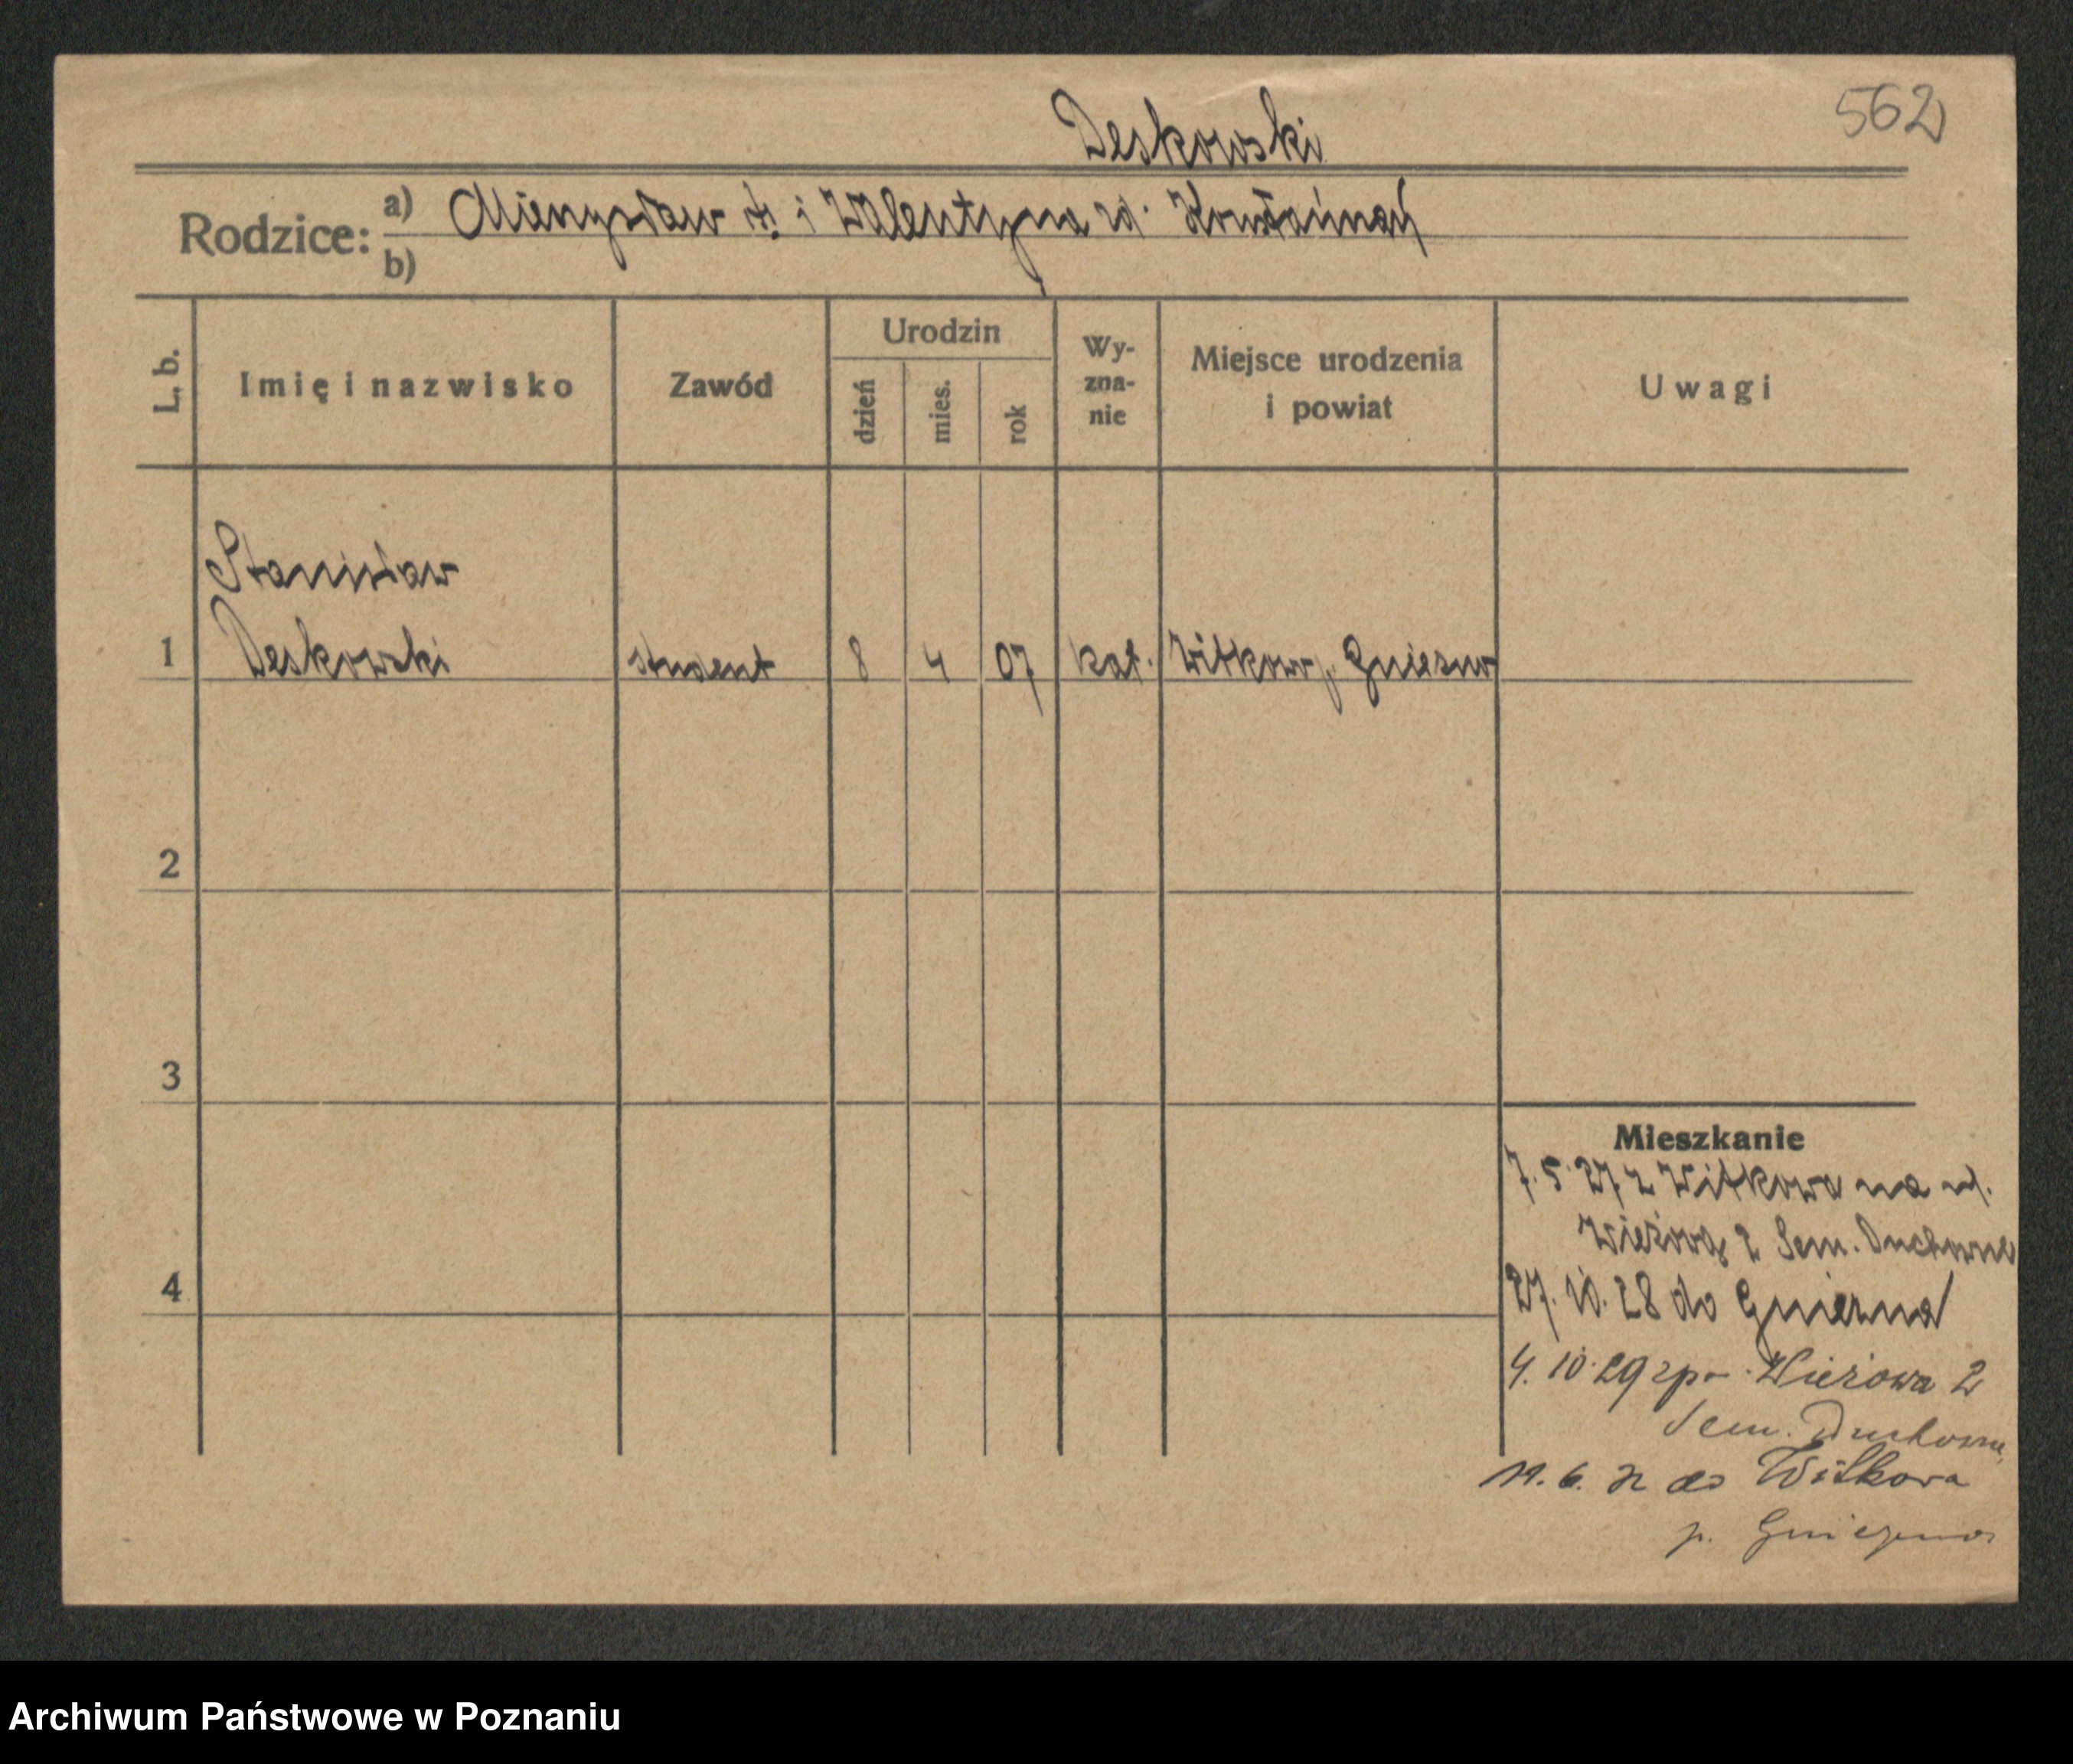 562
Deskowski
Rodzice:
a) Mieczysław i Walentyna
b)
L. b.
Imię i nazwisko
Zawód
Urodzin
dzień
mies.
rok
Wy-
zna-
nie
Miejsce urodzenia
i powiat
Uwagi
Stanisław
1 Deskowski student 8 4 07 kat. Witkowo p. Gniezno
2
3
4
Mieszkanie
7. 5. 27 z Witkowa na ul.
Wieżową 2 Sem. Duchowne
27. 10. 28 do Gniezna
4. 10. 29 zpr. Wieżowa 2
Sem. Duchowne
11. 6. do Witkowa
p. Gniezno
Archiwum Państwowe w Poznaniu